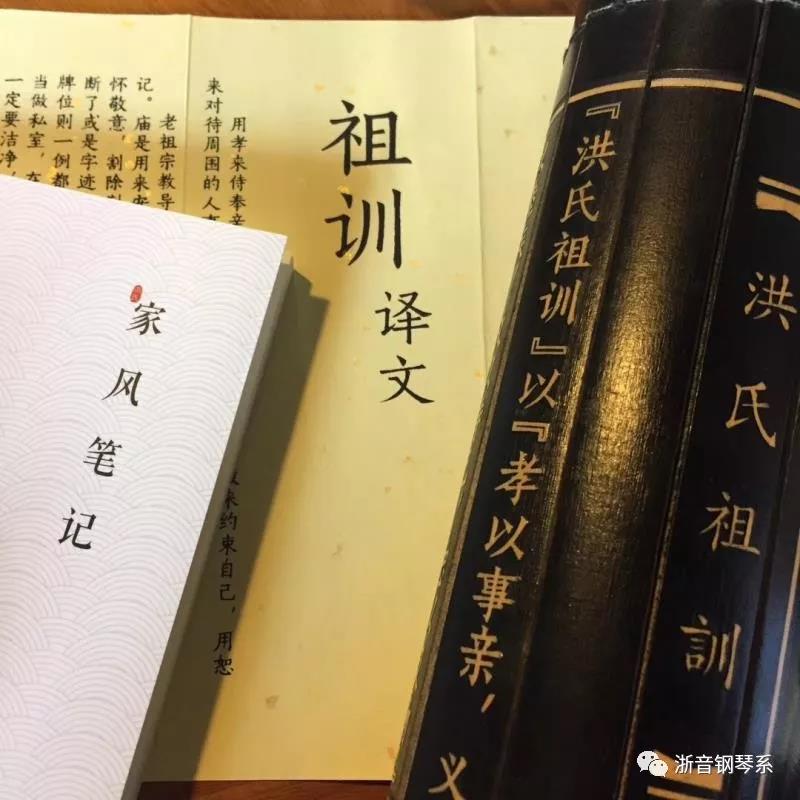 【洪氏祖訓】
『洪氏祖训』以『孝以事亲，义
祖训
译文
用孝来侍奉亲
来对待周围的人
来约束自己，用恕
老祖宗教导
记。庙是用来
怀敬意，割除
断了或是字迹
牌位则一例都
当做私室，在
一定要洁净
家风笔记
浙音钢琴系